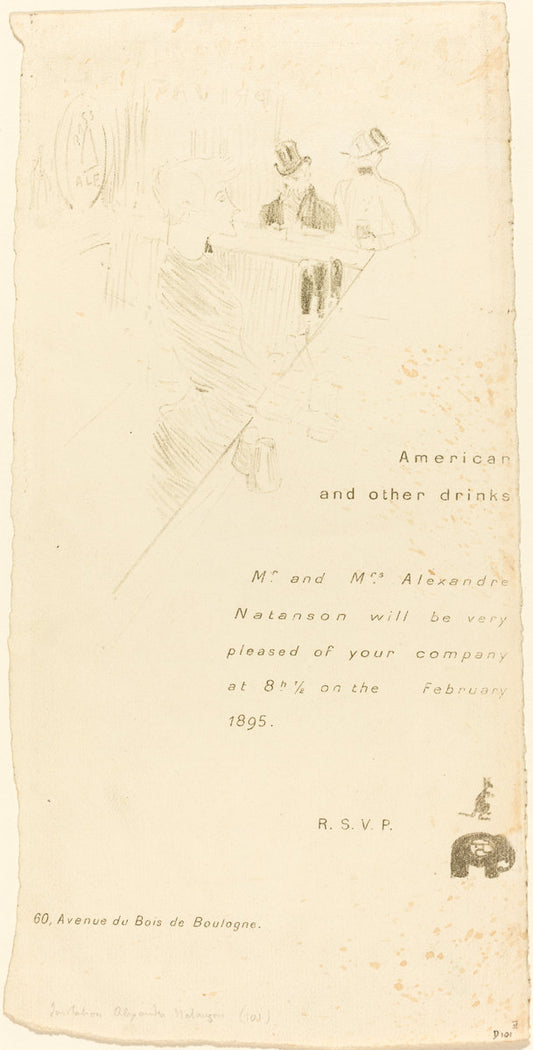 ALE
American
and other drinks
Mr and Mrs Alexandre
Natanson will be very
pleased of your company
at 8h 1/2 on the February
1895.
R. S. V. P.
60, Avenue du Bois de Boulogne.
Invitation Alexandre Natanson (101)
II
D 101